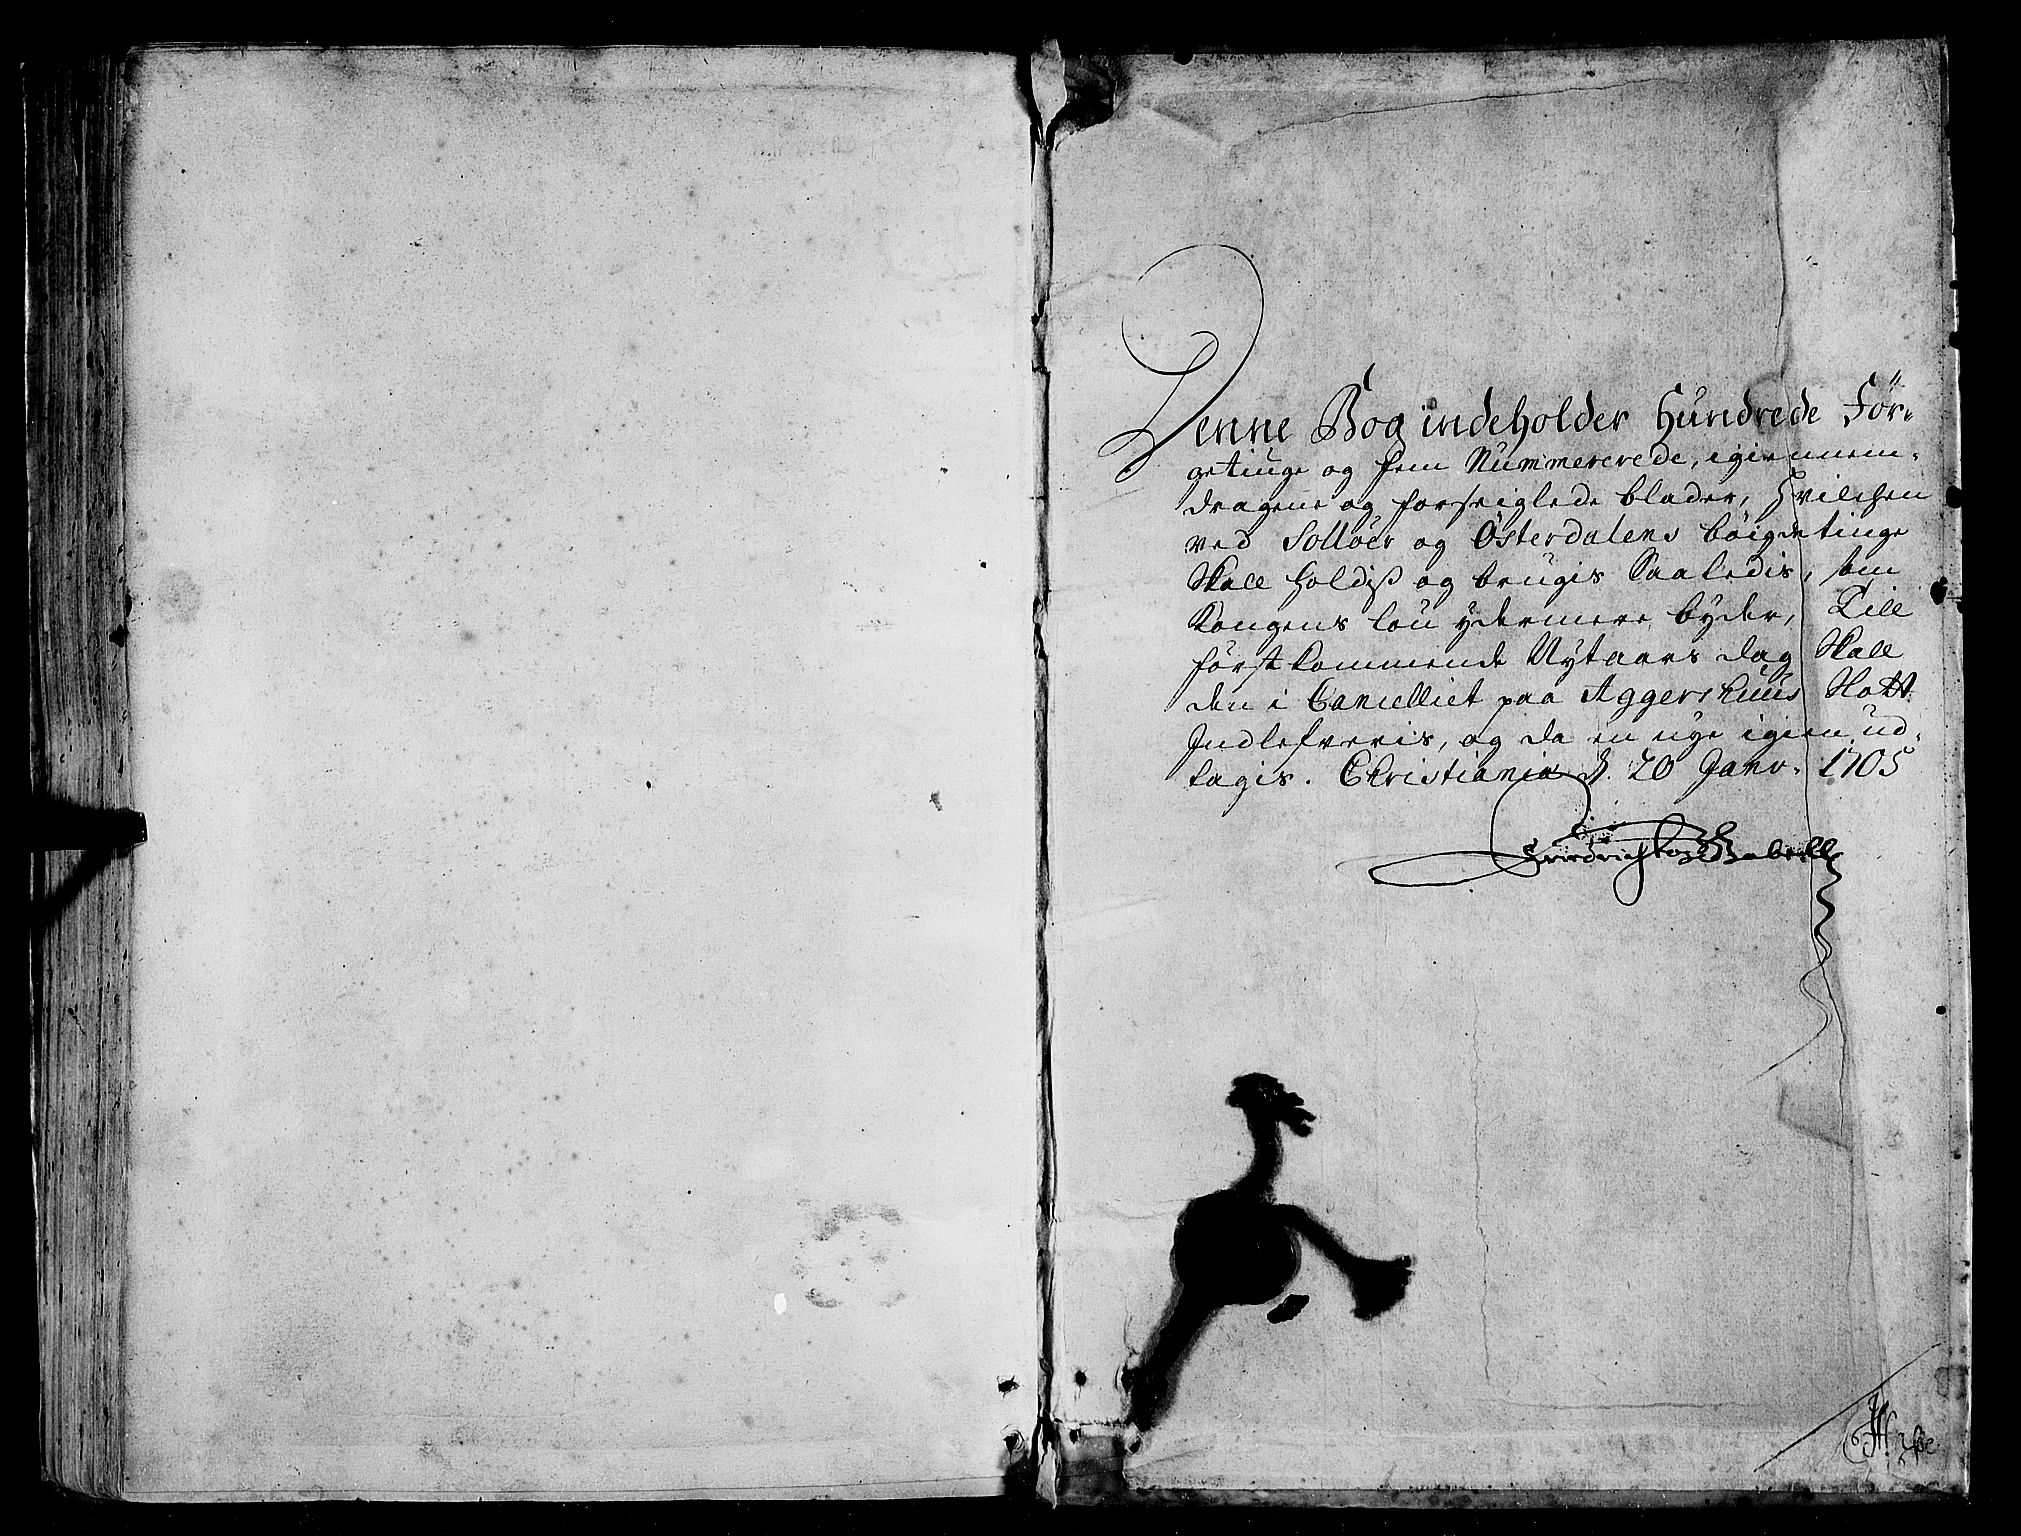 Denne Bog indeholder Hundrede För-
getiuge og fem Nummererede, igiennem-
dragene og forseiglede blader, Hvilchen
ved Sollöer og Österdalens böigdetinge
Skall holdiß og brugis Saaledis, som
Kongens lou ydermere byder, Till
förstkommende Nytaars dag Skall
den i Cancelliet paa Aggershuus Slott
Indlefveris, og da en nye igien ud-
tagis. Christiania d. 20 Janv. 1705